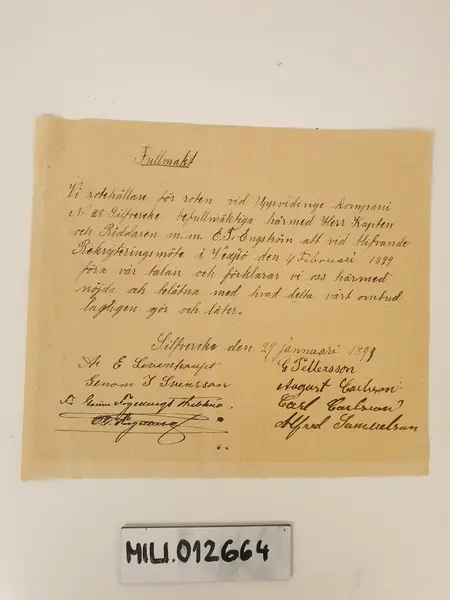 Fullmakt
Vi rotehållare för roten vid Uppvidinge kompani
No 28 Silfverske befullmäktiga härmed Herr Kapten
och Riddaren m.m. E. Engström att vid
Rekryteringsmöte i Vexjö den 4 Februari 1899
föra vår talan och förklarar vi oss härmed
nöjda och belåtna med hvad detta vårt ombud
lagligen gör och låter.
Silfverske den 29 januari 1899
A. E
G Pettersson
Genom J Svensson
August Carlson
Carl Carlson
Alfred Samuelson
MILI.012664